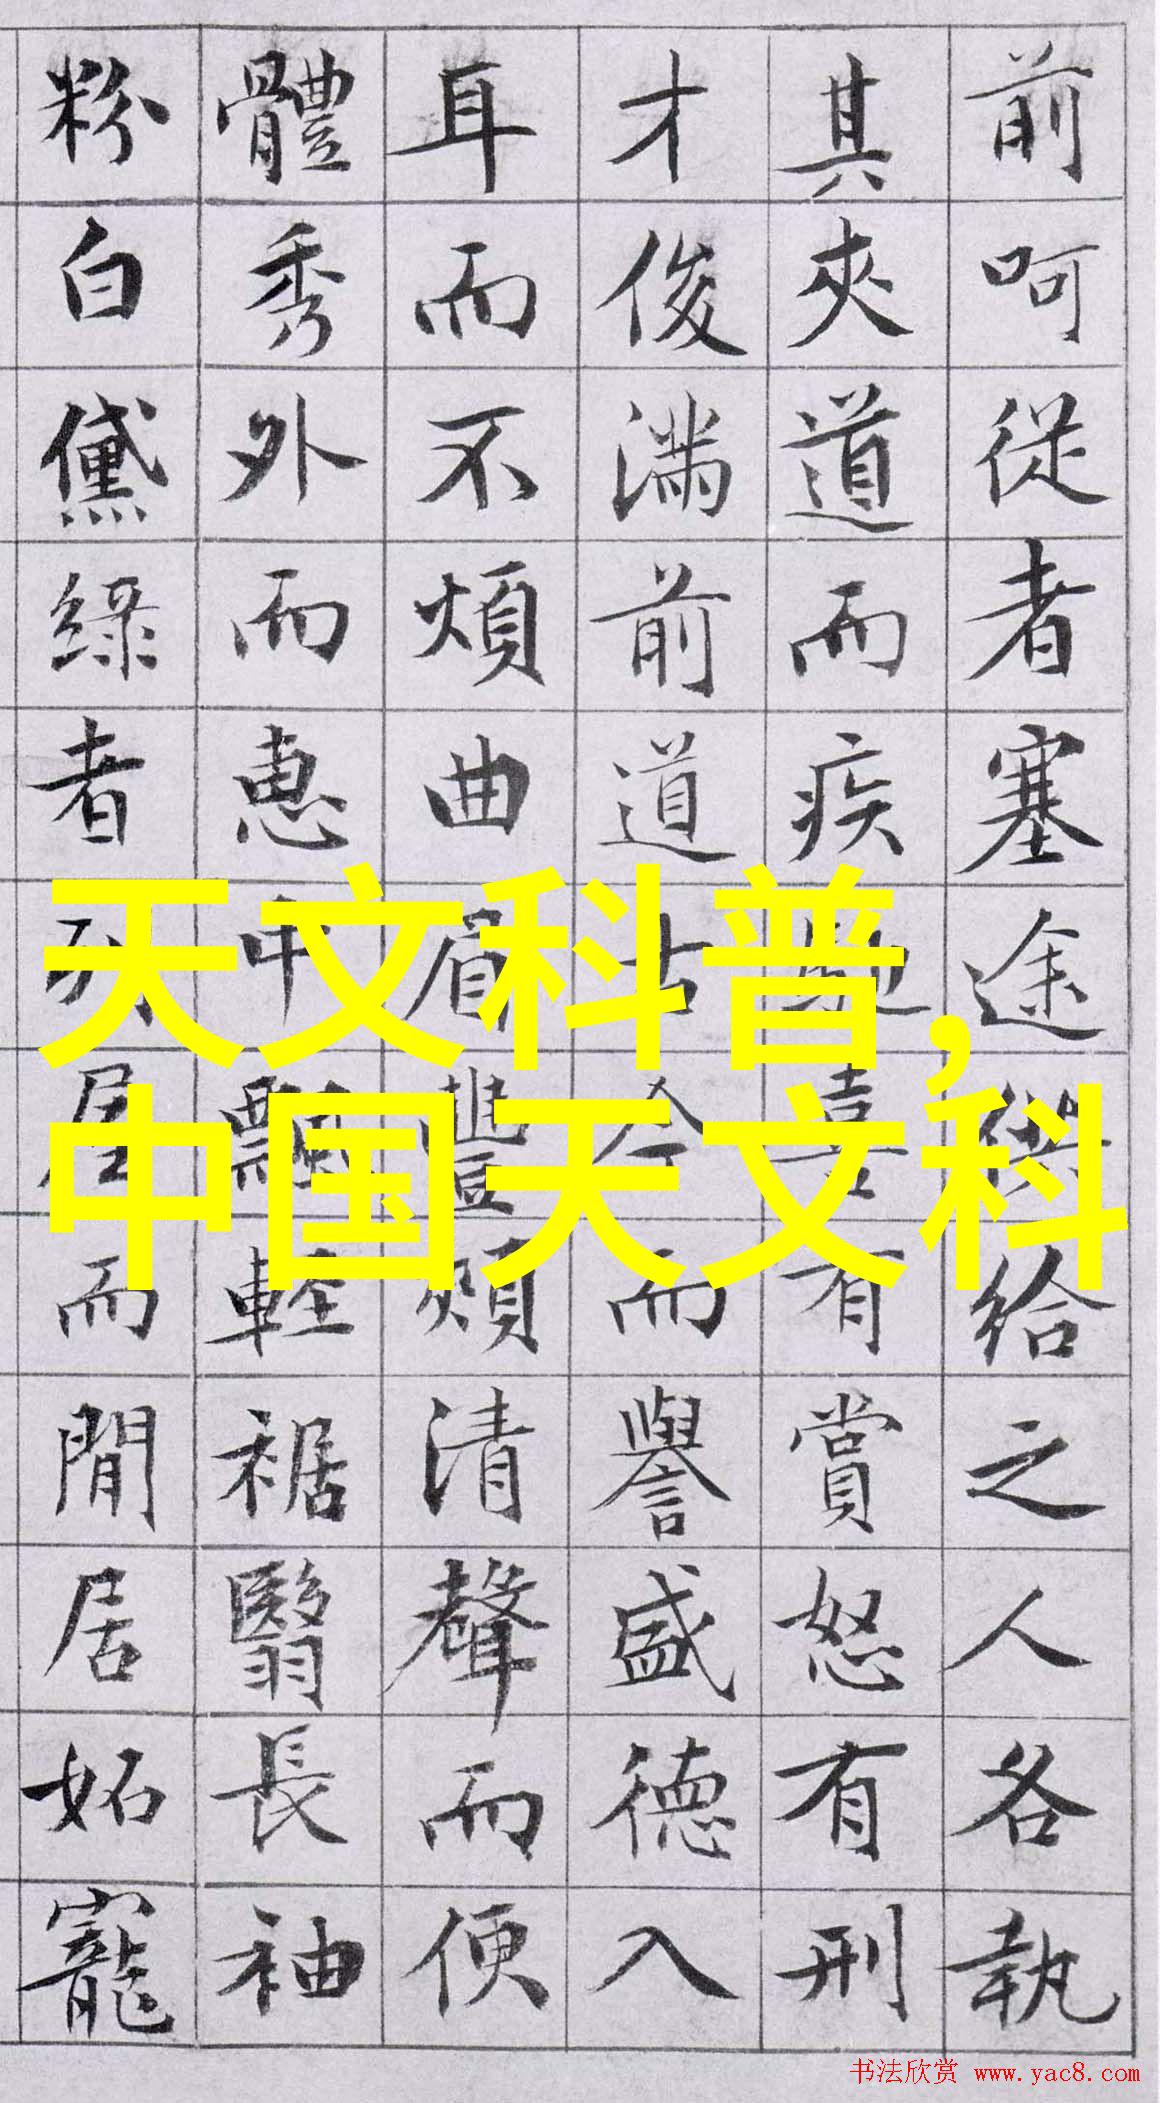 前呵從者塞途供給之人各執
其夾道而疾馳喜有賞怒有刑
才俊滿前道古今而譽盛德入
耳而不煩曲眉豐頰清聲而便
體秀外而惠中飄輕裾翳長袖
粉白黛綠者列屋而閒居妬寵
天文科普,
中国天文科
书法欣赏 www.yac8.com